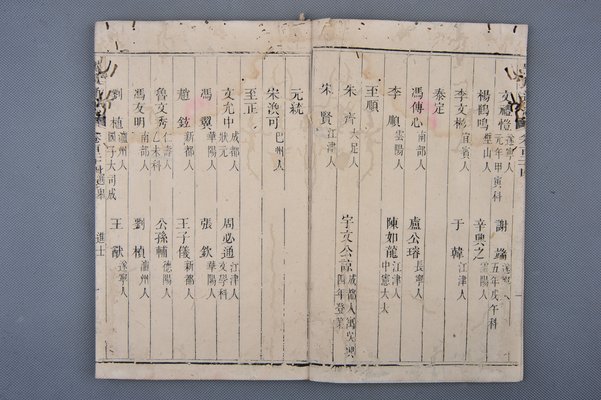 文禮愷 遂寧人 元年甲寅科 謝端 遂寧人 五年戊午科
楊鶴鳴 璧山人 辛興之 雲陽人
李文彬 宜賓人 于韓 江津人
泰定
馮傳心 南部人 盧公瑢 長寧人
李順 雲陽人 陳如龍 江津人 中憲大夫
至順
朱齊 大足人 宇文公諒 成都人寓吳興 四年登第
宋賢 江津人
元統
宋漁可 巴州人
至正
文允中 成都人 狀元 周必通 江津人 文學科
馮翼 華陽人 張欽 華陽人
趙鉉 新都人 王子儀 新都人
魯文秀 仁壽人 乙未科 公孫輔 德陽人
馮友明 南部人 劉楨 瀘州人
劉植 瀘州人 國子大司成 王猷 遂寧人
進士